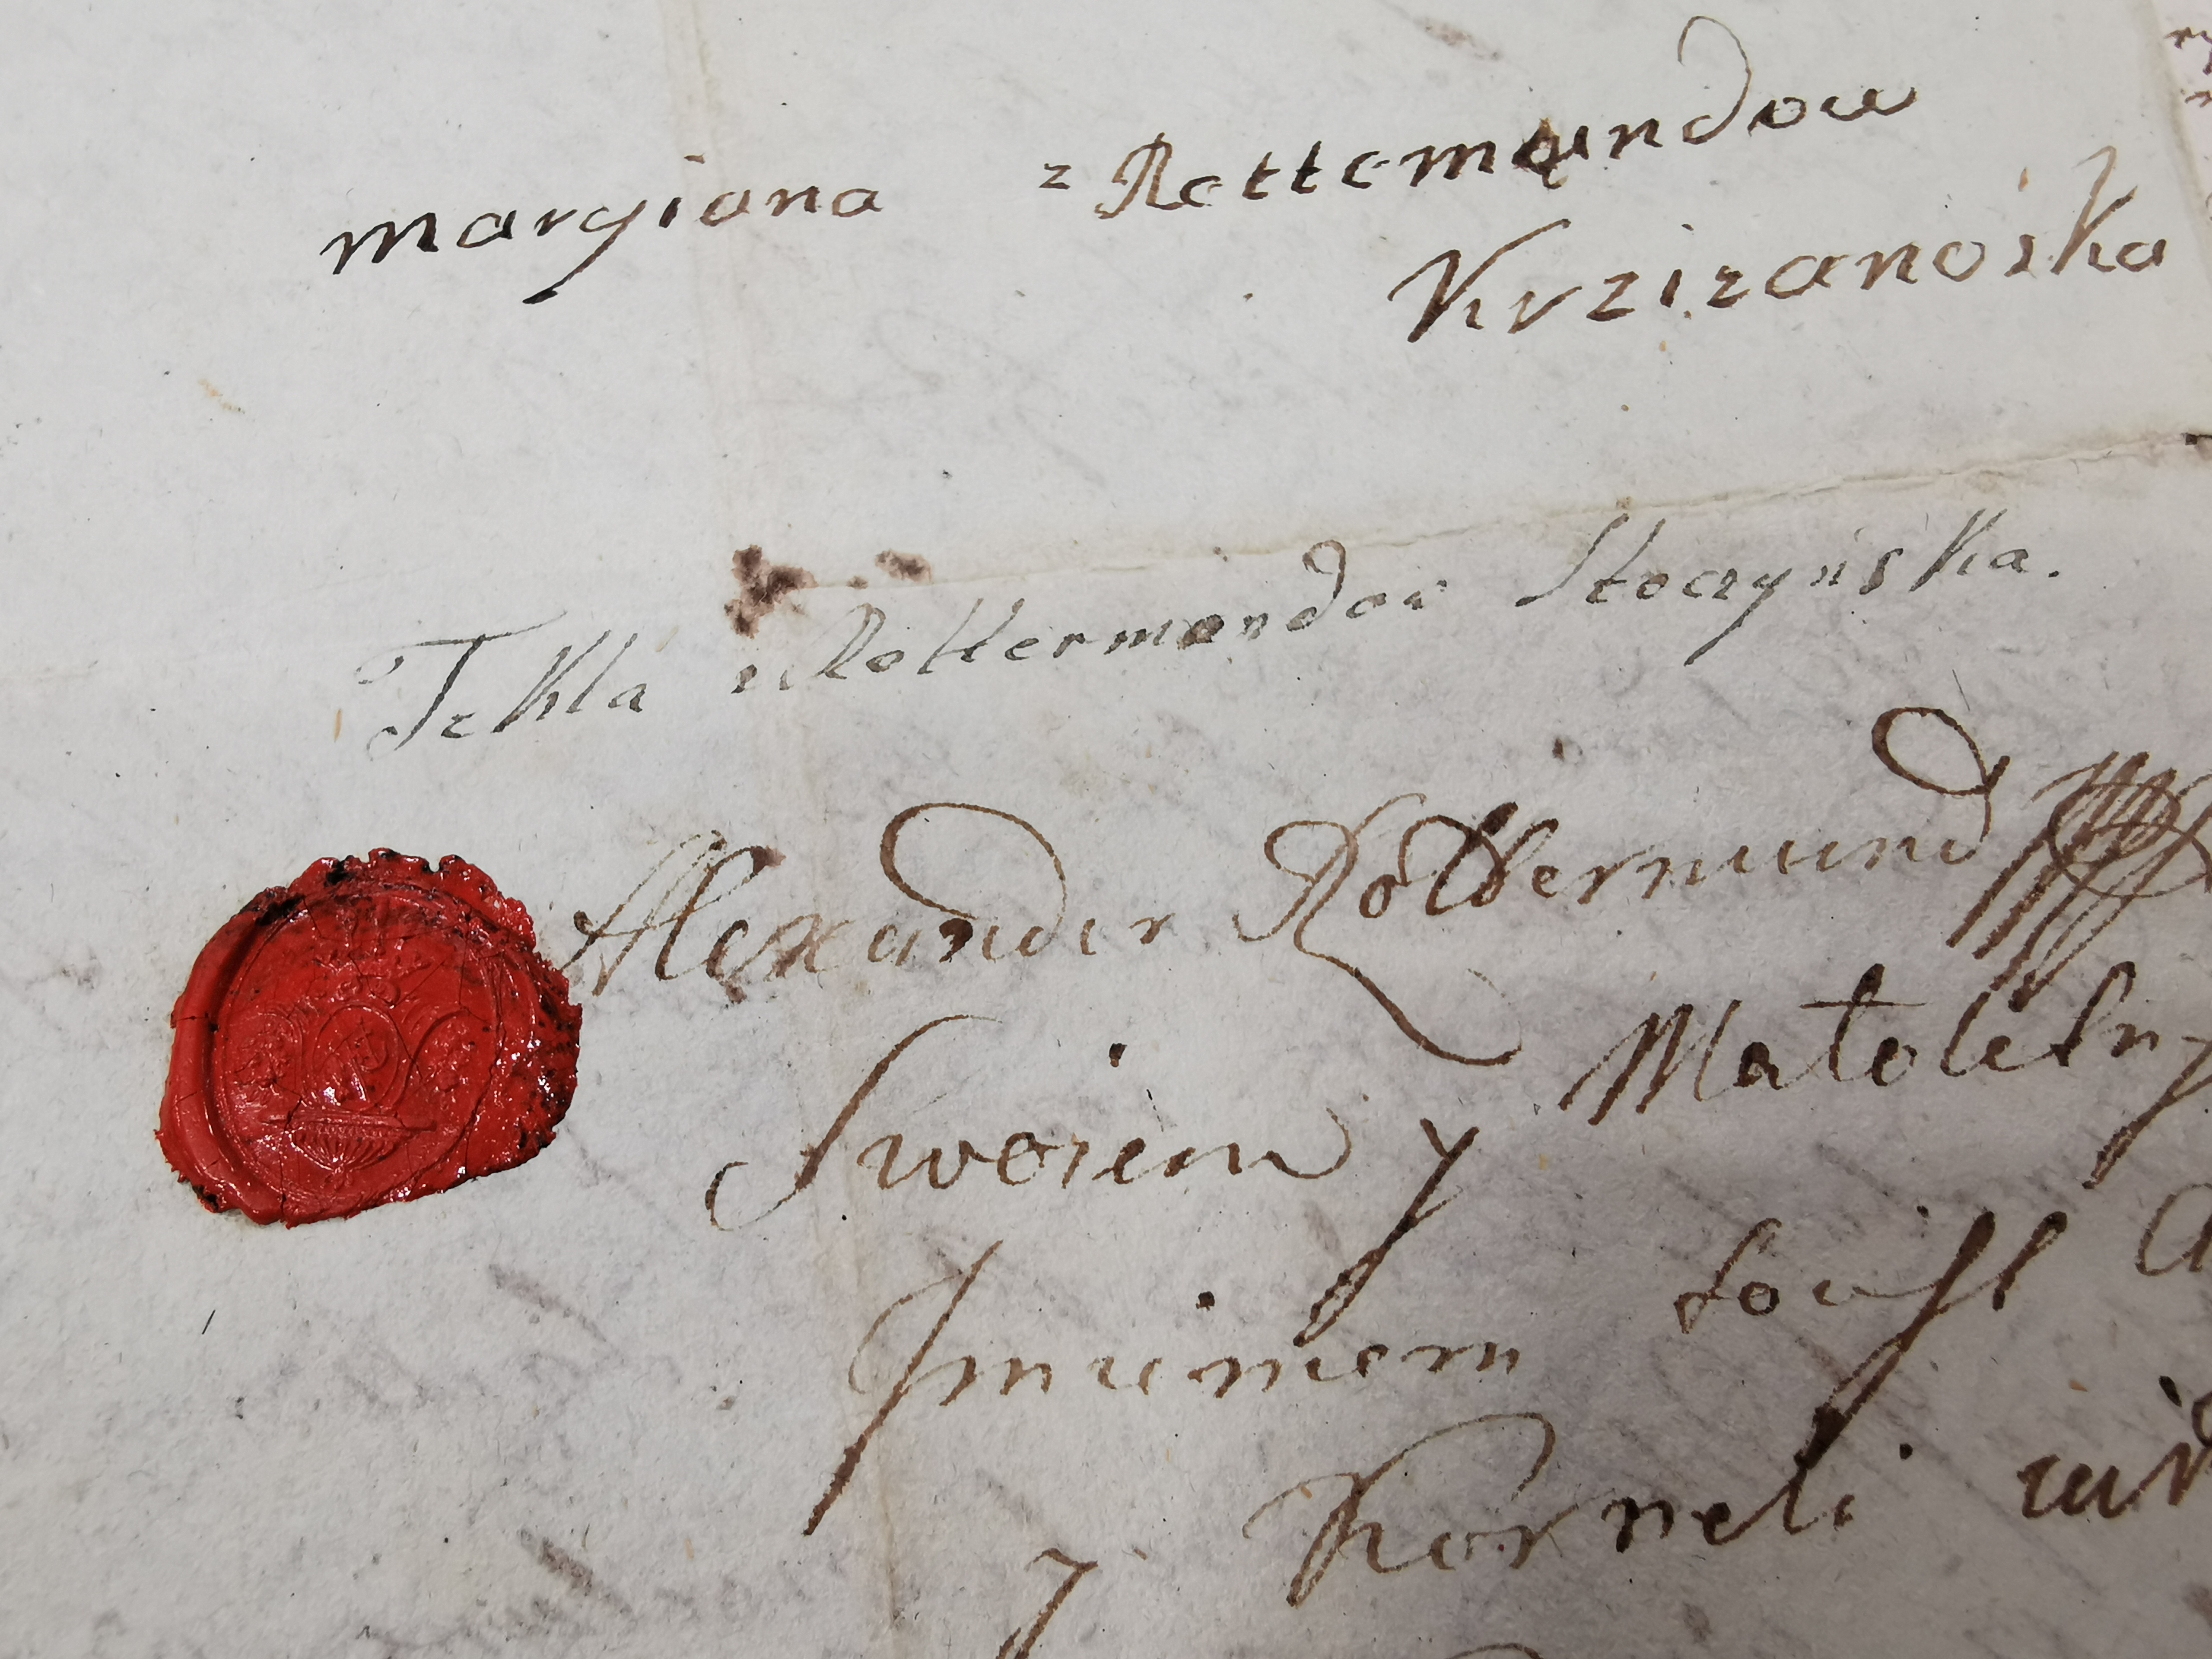 margiana z Rottemundow
Krzizanoska
Tekla z Rottermondow Stoczyńska.
Alexander Rottermund
Swoiem y Matoletny
Imieniem
y Korneli